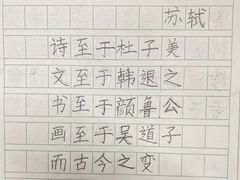 苏轼
诗至于杜子美
文至于韩退之
书至于颜鲁公
画至于吴道子
而古今之变